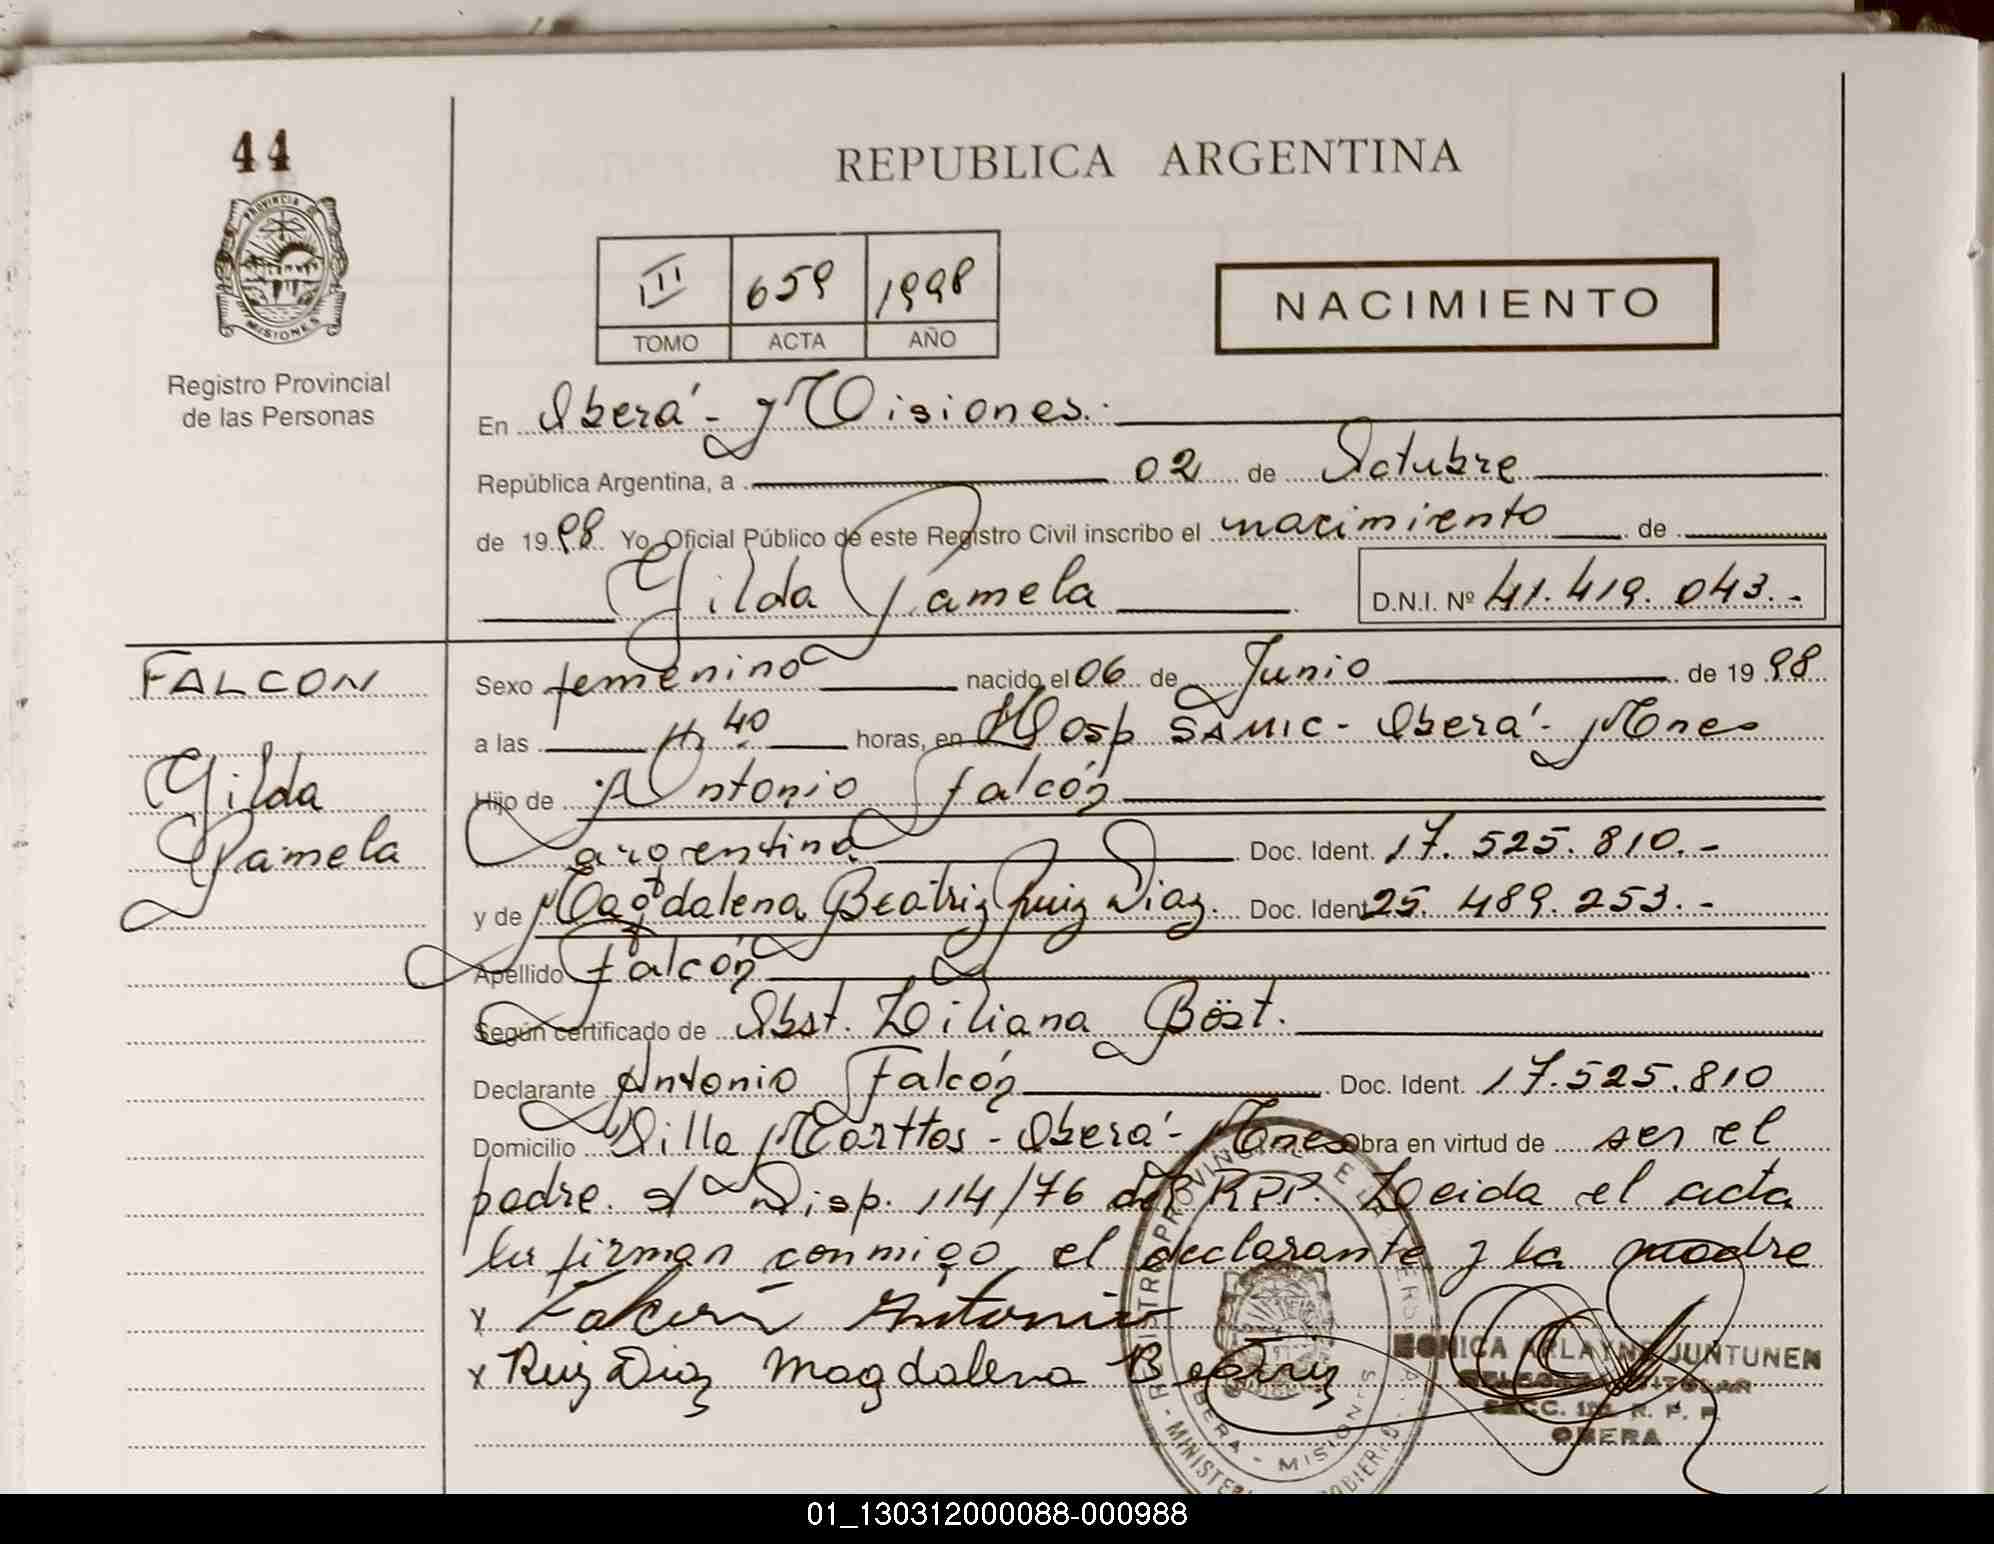 44
PROVINCIA DE
MISIONES
Registro Provincial
de las Personas
REPUBLICA ARGENTINA
III 659 1998
TOMO ACTA AÑO
NACIMIENTO
En Oberá - Misiones.
República Argentina, a 02 de Octubre
de 1998 Yo Oficial Público de este Registro Civil inscribo el nacimiento de
Gilda Pamela D.N.I. Nº 41.419.043.-
FALCON
Gilda
Pamela
Sexo femenino nacido el 06 de Junio de 1998
a las 40 horas, en Hosp SAMIC - Oberá - Mnes
Hijo de Antonio Falcón
argentina Doc. Ident. 17.525.810.-
y de Magdalena Beatriz Ruiz Diaz. Doc. Ident 25.489.253.-
Apellido Falcón
Según certificado de Obst. Liliana Böst.
Declarante Antonio Falcón Doc. Ident. 17.525.810
Domicilio Villa Marttos - Oberá - Mnes Obra en virtud de ser el
padre. s/ Disp. 114/76 del RPP. Leida el acta
la firman conmigo el declarante y la madre
x Falcon Antonio
x Ruiz Diaz Magdalena Beatriz
MONICA ARLAYNE JUNTUNEN
DELEGADA TITULAR
SECC. R. P. P.
OBERA
OBERA - MISIONES
01_130312000088-000988